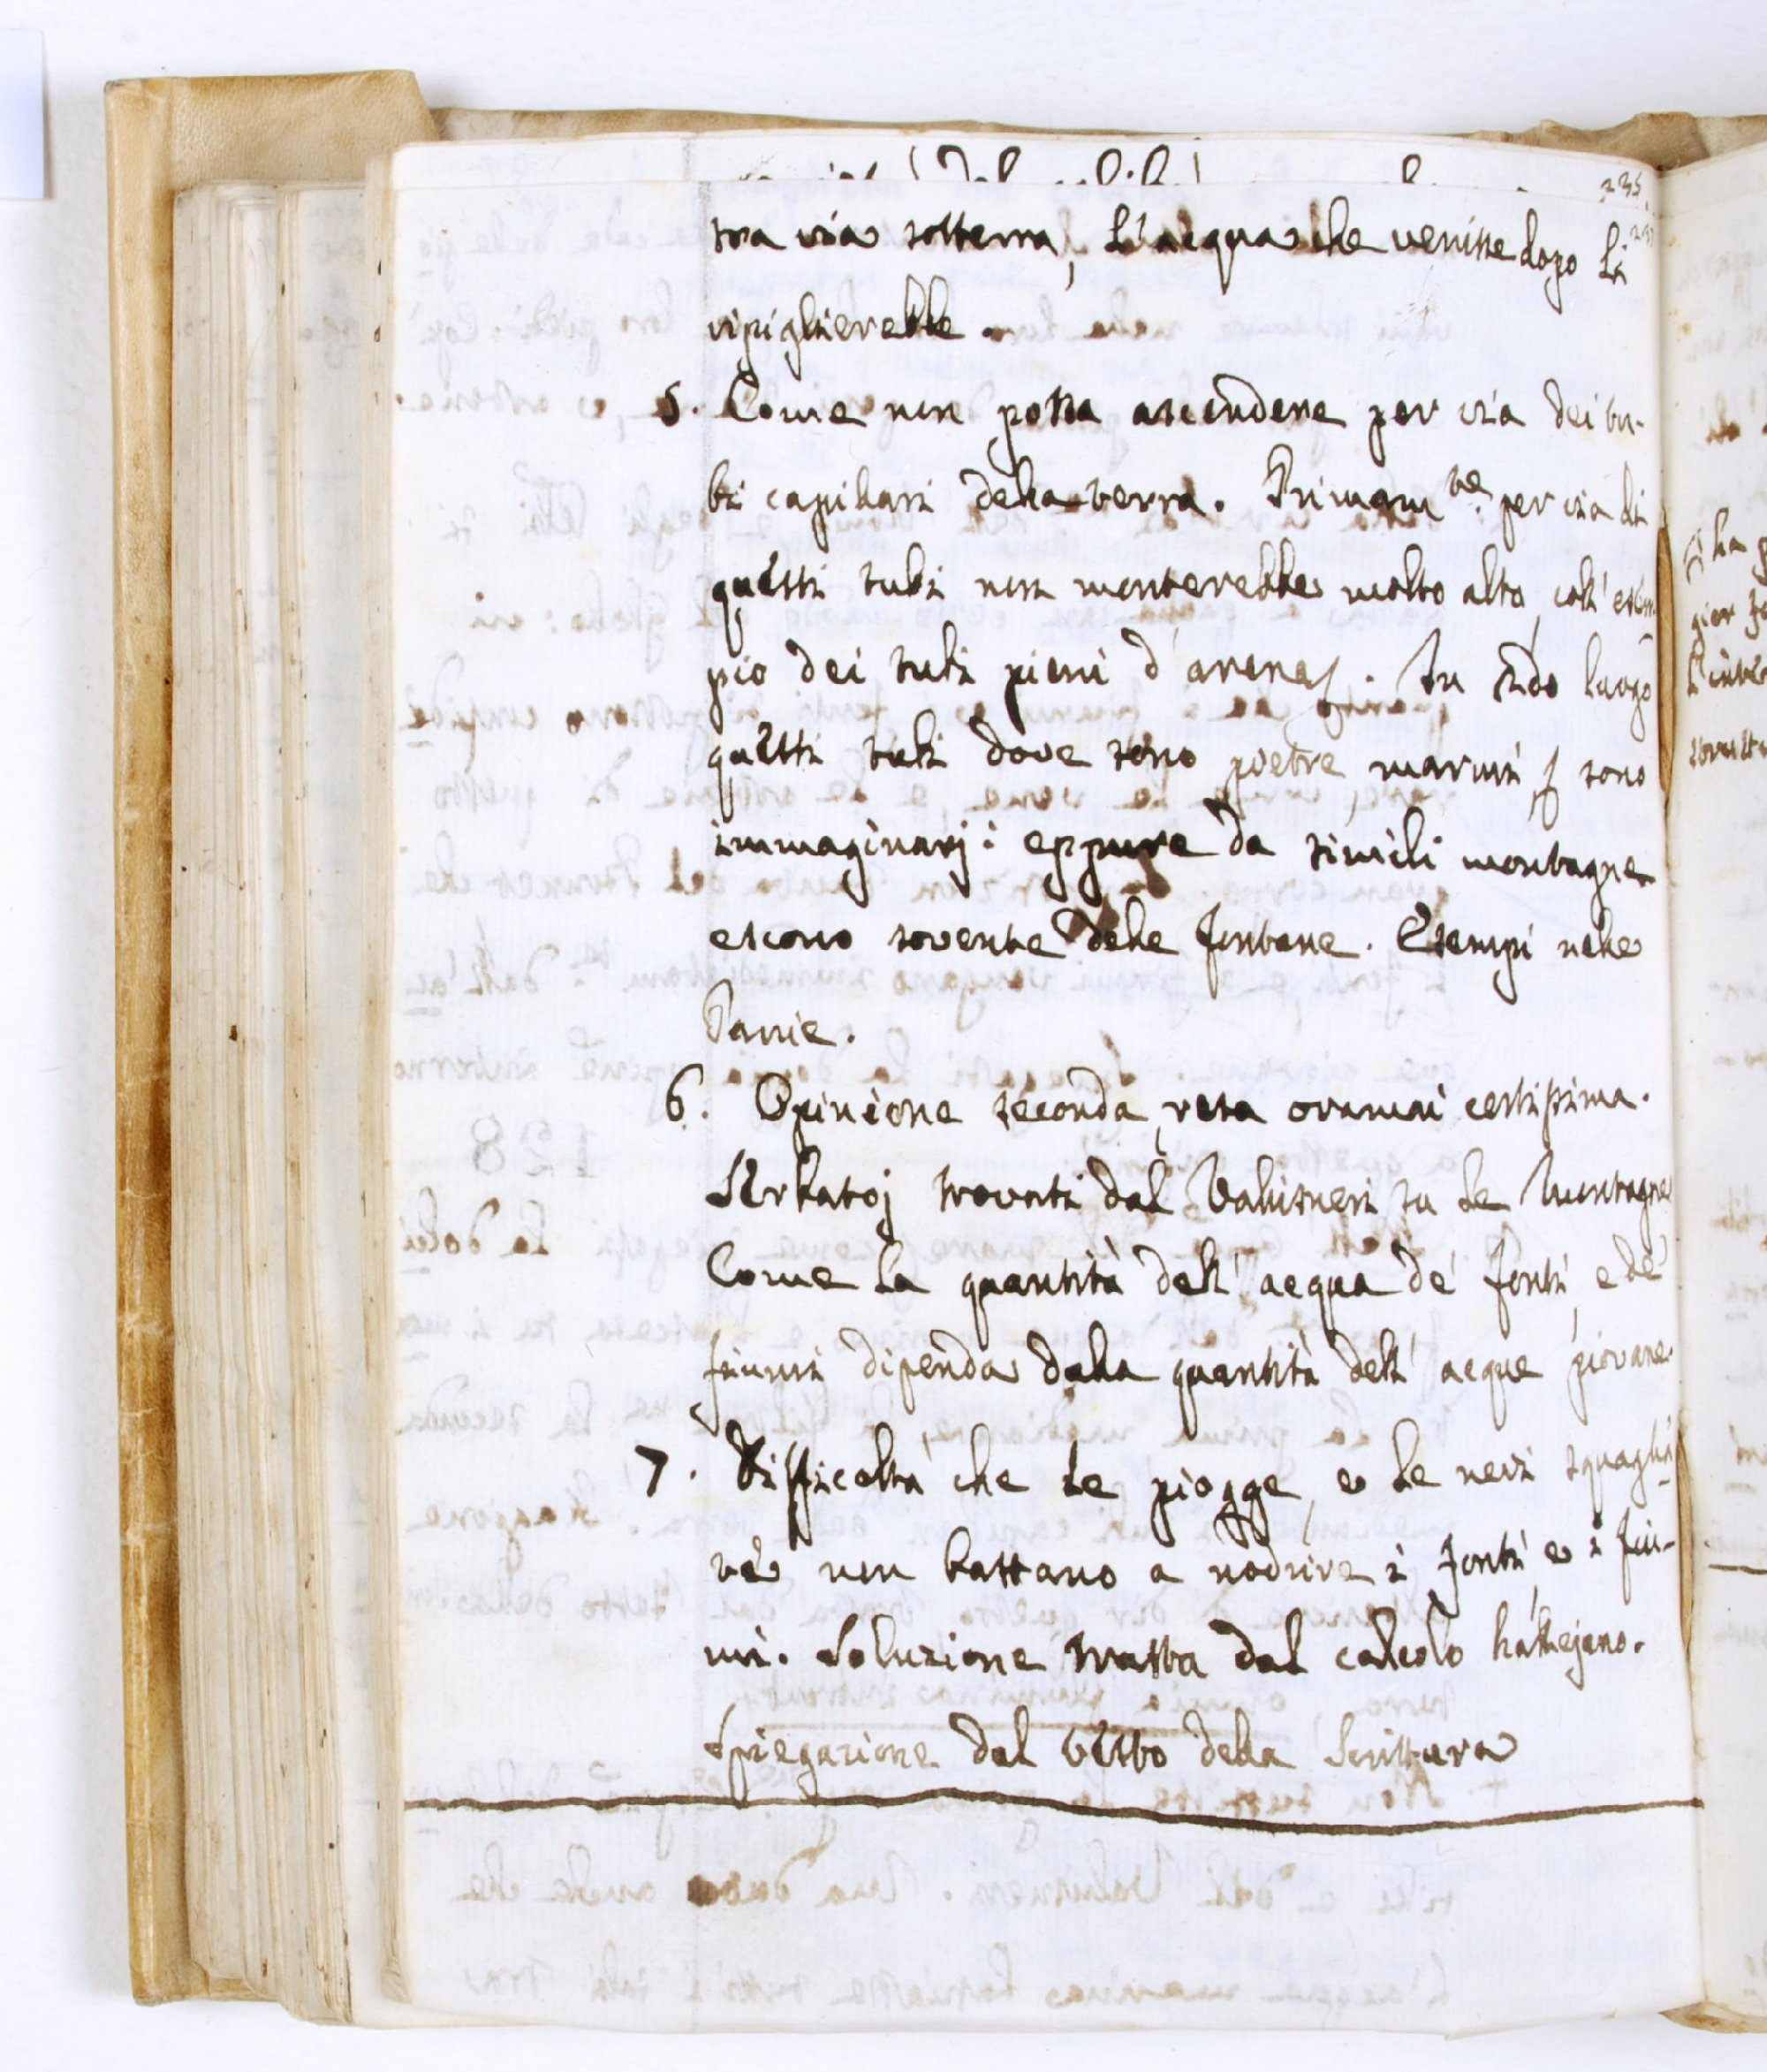 235.
sua via sotterra, l'acqua che venisse dopo li
ripiglierebbe.
5. Come non possa ascendere per via dei tu-
bi capillari della terra. Primam.te per via di
questi tubi non monterebbe molto alto, coll' esem-
pio dei tubi pieni d'arena. In 2do luogo
questi tubi dove sono pietre marmi sono
immaginarj: eppure da simili montagne
escono sovente delle fontane. Esempi nelle
Panie.
6. Opinione seconda, resa oramai certissima.
Serbatoj trovati dal Valisneri su le Montagne
Come la quantità dell' acqua de' fonti, e de'
fiumi dipenda dalla quantità dell' acque piovane.
7. Difficoltà che le piogge, e le nevi squaglia
te non bastano a nodrire i fonti, e i fiu-
mi. Soluzione tratta dal calcolo hallejano.
Spiegazione del testo della Scrittura